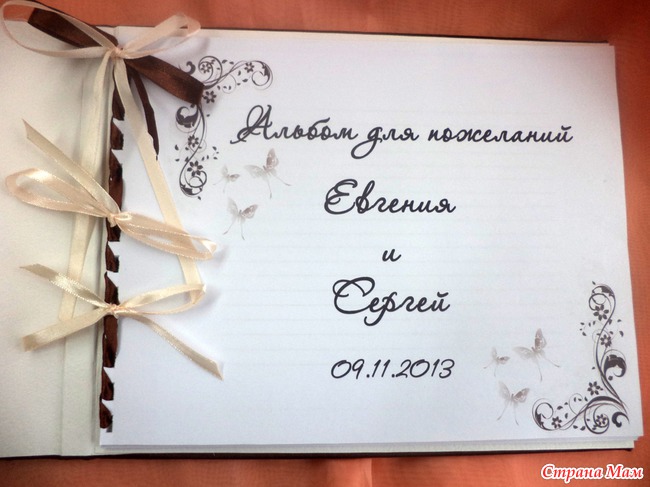 Альбом для пожеланий
Евгения
и
Сергей
09.11.2013
Страна Мам